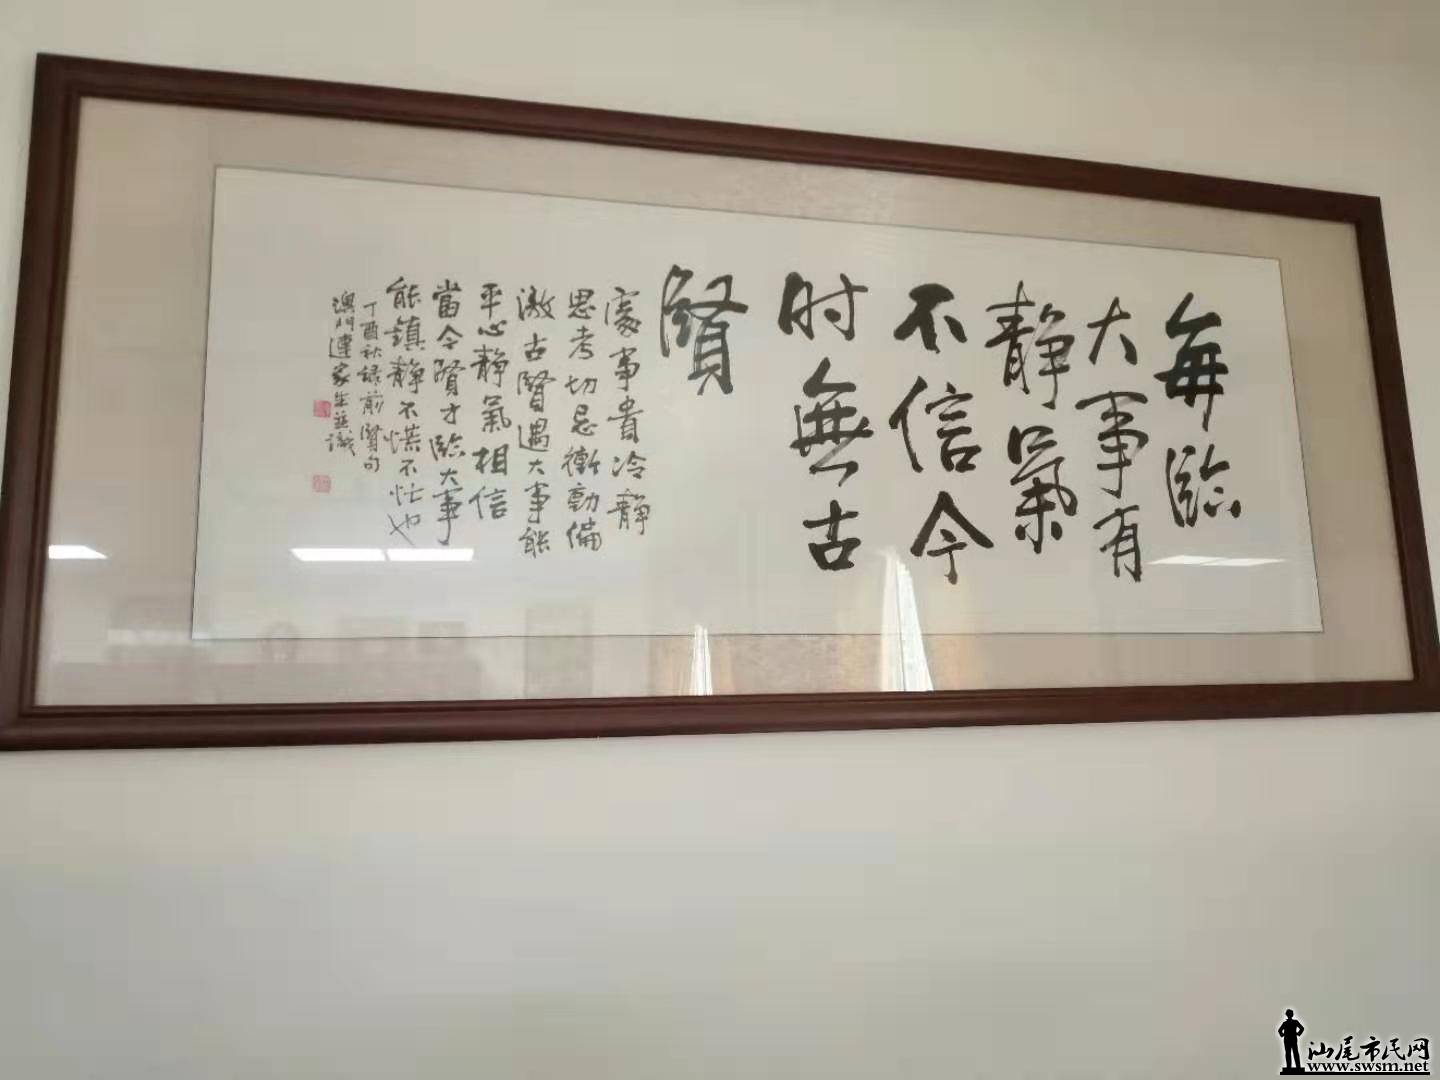 每臨
大事有
静氣
不信今
时無古
賢
處事貴冷静
思考切忌衝動偏
激古賢遇大事能
平心静氣相信
當今賢才臨大事
能鎮静不慌不忙也
丁酉秋録前賢句
澳門連家生並識
汕尾市民网
www.swsm.net